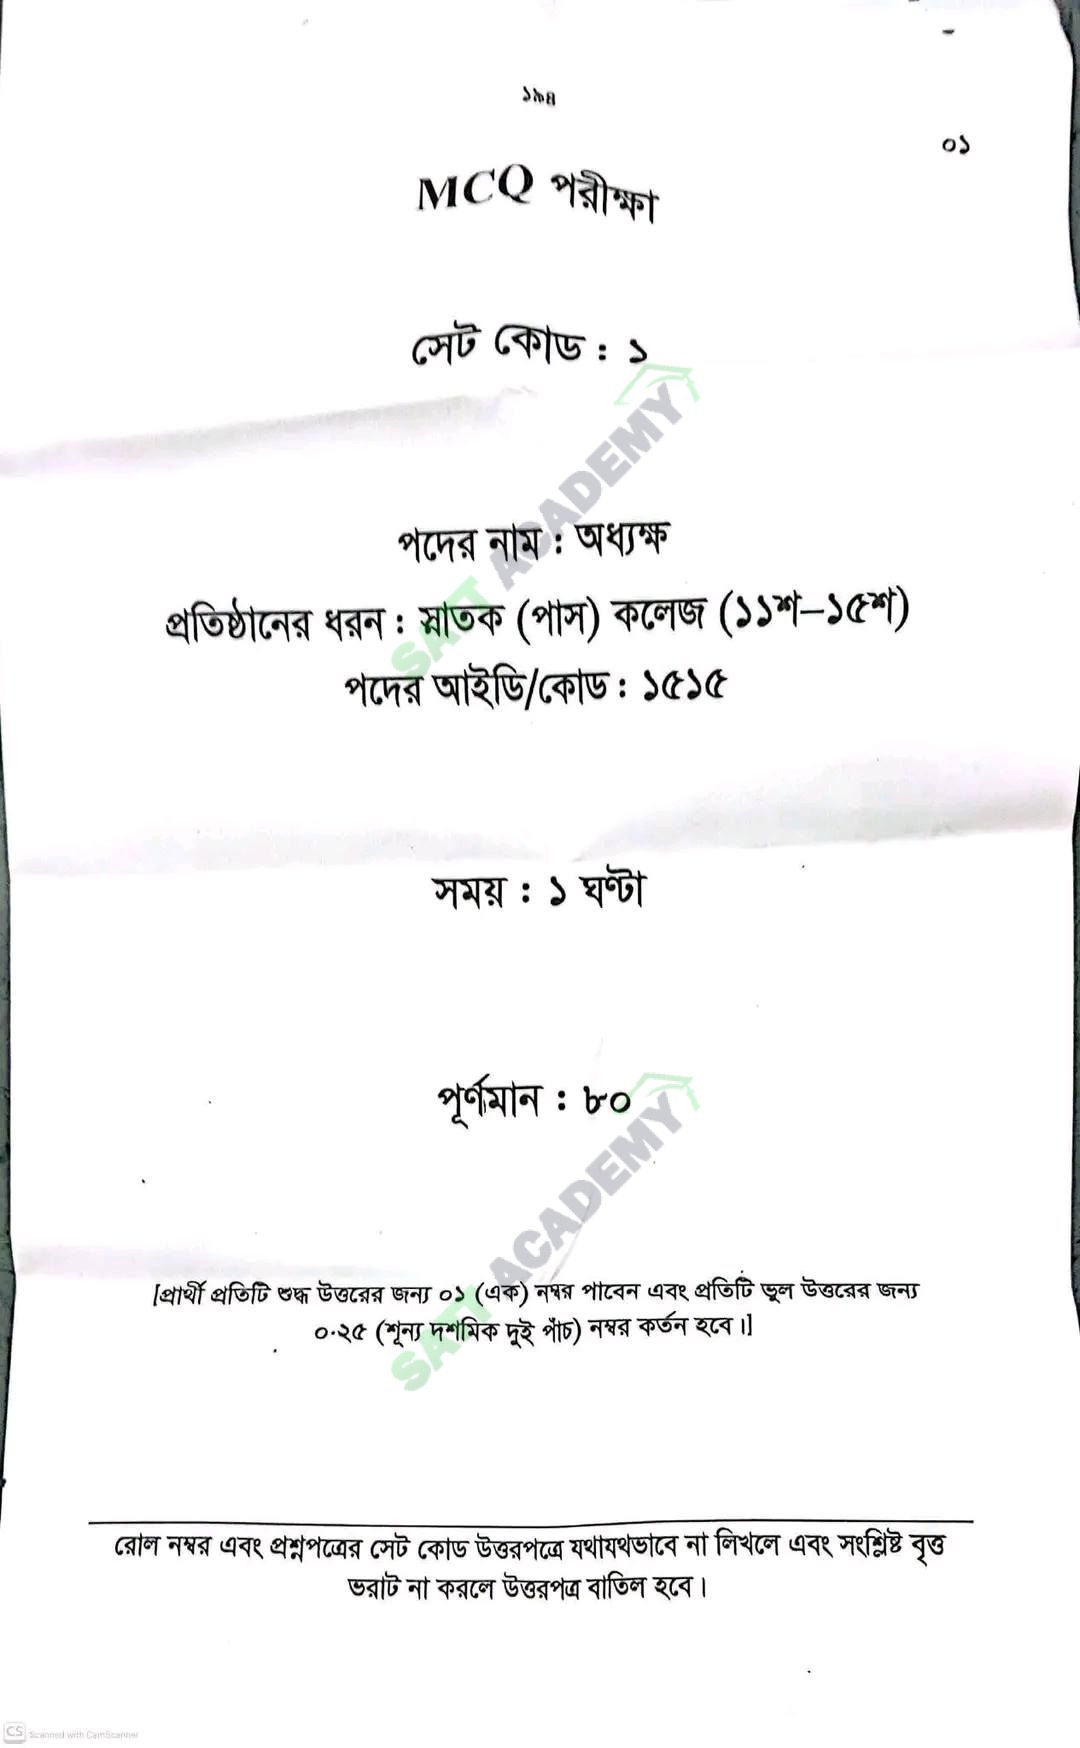 ০১
MCQ পরীক্ষা
সেট কোড : ১
পদের নাম : অধ্যক্ষ
প্রতিষ্ঠানের ধরন : স্নাতক (পাস) কলেজ (১১শ–১৫শ)
পদের আইডি/কোড : ১৫১৫
সময় : ১ ঘণ্টা
পূর্ণমান : ৮০
[প্রার্থী প্রতিটি শুদ্ধ উত্তরের জন্য ০১ (এক) নম্বর পাবেন এবং প্রতিটি ভুল উত্তরের জন্য
০·২৫ (শূন্য দশমিক দুই পাঁচ) নম্বর কর্তন হবে।]
রোল নম্বর এবং প্রশ্নপত্রের সেট কোড উত্তরপত্রে যথাযথভাবে না লিখলে এবং সংশ্লিষ্ট বৃত্ত
ভরাট না করলে উত্তরপত্র বাতিল হবে।
SATT ACADEMY
SATT ACADEMY
CS Scanned with CamScanner